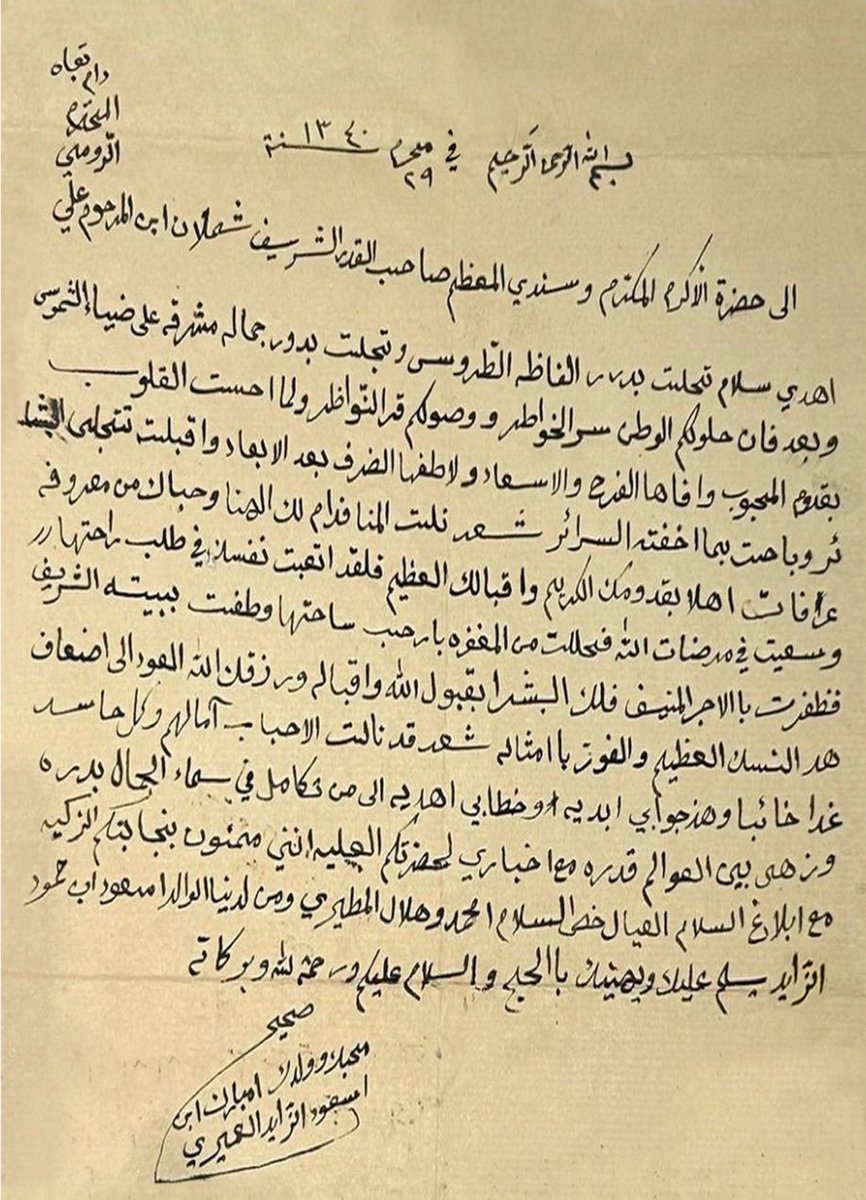 بسم الله الرحمن الرحيم في ٢٩ محرم سنة ١٣٤٠
الى حضرة الأكرم المكترم وسندي المعظم صاحب القدر الشريف شملان ابن المرحوم علي
الرومي
المحترم
دام بقاه
اهدي سلام تحلت بدرر الفاظه الطروس وتجلت بدور جماله مشرقه على ضياء الشموس
وبعد فان حلولكم الوطن سر الخواطر ووصولكم قر النواظر ولما احست القلوب
بقدوم المحبوب وافاها الفرح والاسعاد ولاطفها الضرف بعد الابعاد واقبلت تتجلى البشا
ئر وباحت بما اخفته السرائر شعر نلت المنا فدام لك الهنا وحباك من معروفه
عرافات اهلا بقدومك الكريم واقبالك العظيم فلقد اتعبت نفسك في طلب راحتها
وسعيت في مرضات الله فحللت من المغفره بارحب ساحتها وطفت ببيته الشريف
فظفرت باالاجر المنيف فلك البشرا بقبول الله واقباله ورزقك الله العود الى اضعاف
هد النسك العظيم والفوز باامثاله شعر قد نالت الاحباب آمالهم وكل حاسد
غدا خائبا وهذ جوابي ابديه وخطابي اهديه الى من تكامل في سماء الجمال بدره
وزهى بين العوالم قدره مع اخباري لحضرتكم العليه انني ممنون بنجابتكم الزكيه
مع ابلاغ السلام العيال خص السلام امحمد وهلال المطيري ومن لدينا الوالد امسعود اب حمود
الزايد يسلم عليك ويهنيك باالحج والسلام عليكم ورحمة الله وبركاته
صحيح
محبك وولدك امبارك ابن
امسعود الزايد العميري